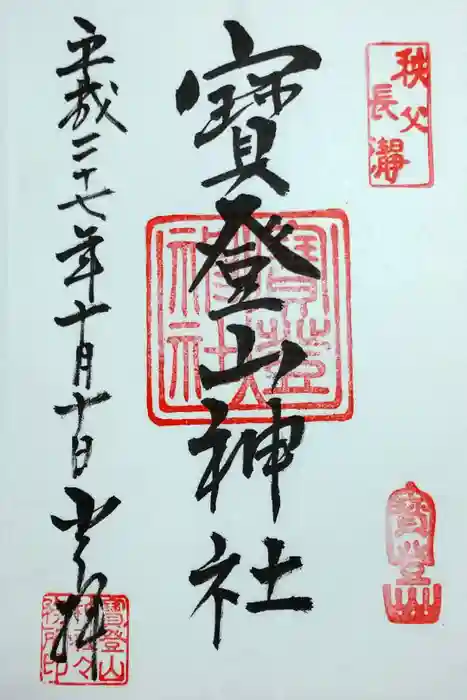 秩父
長瀞
寶登山神社
寶登山神社
寶登山
平成二十七年十月十日
寶登山
神社々
務所印